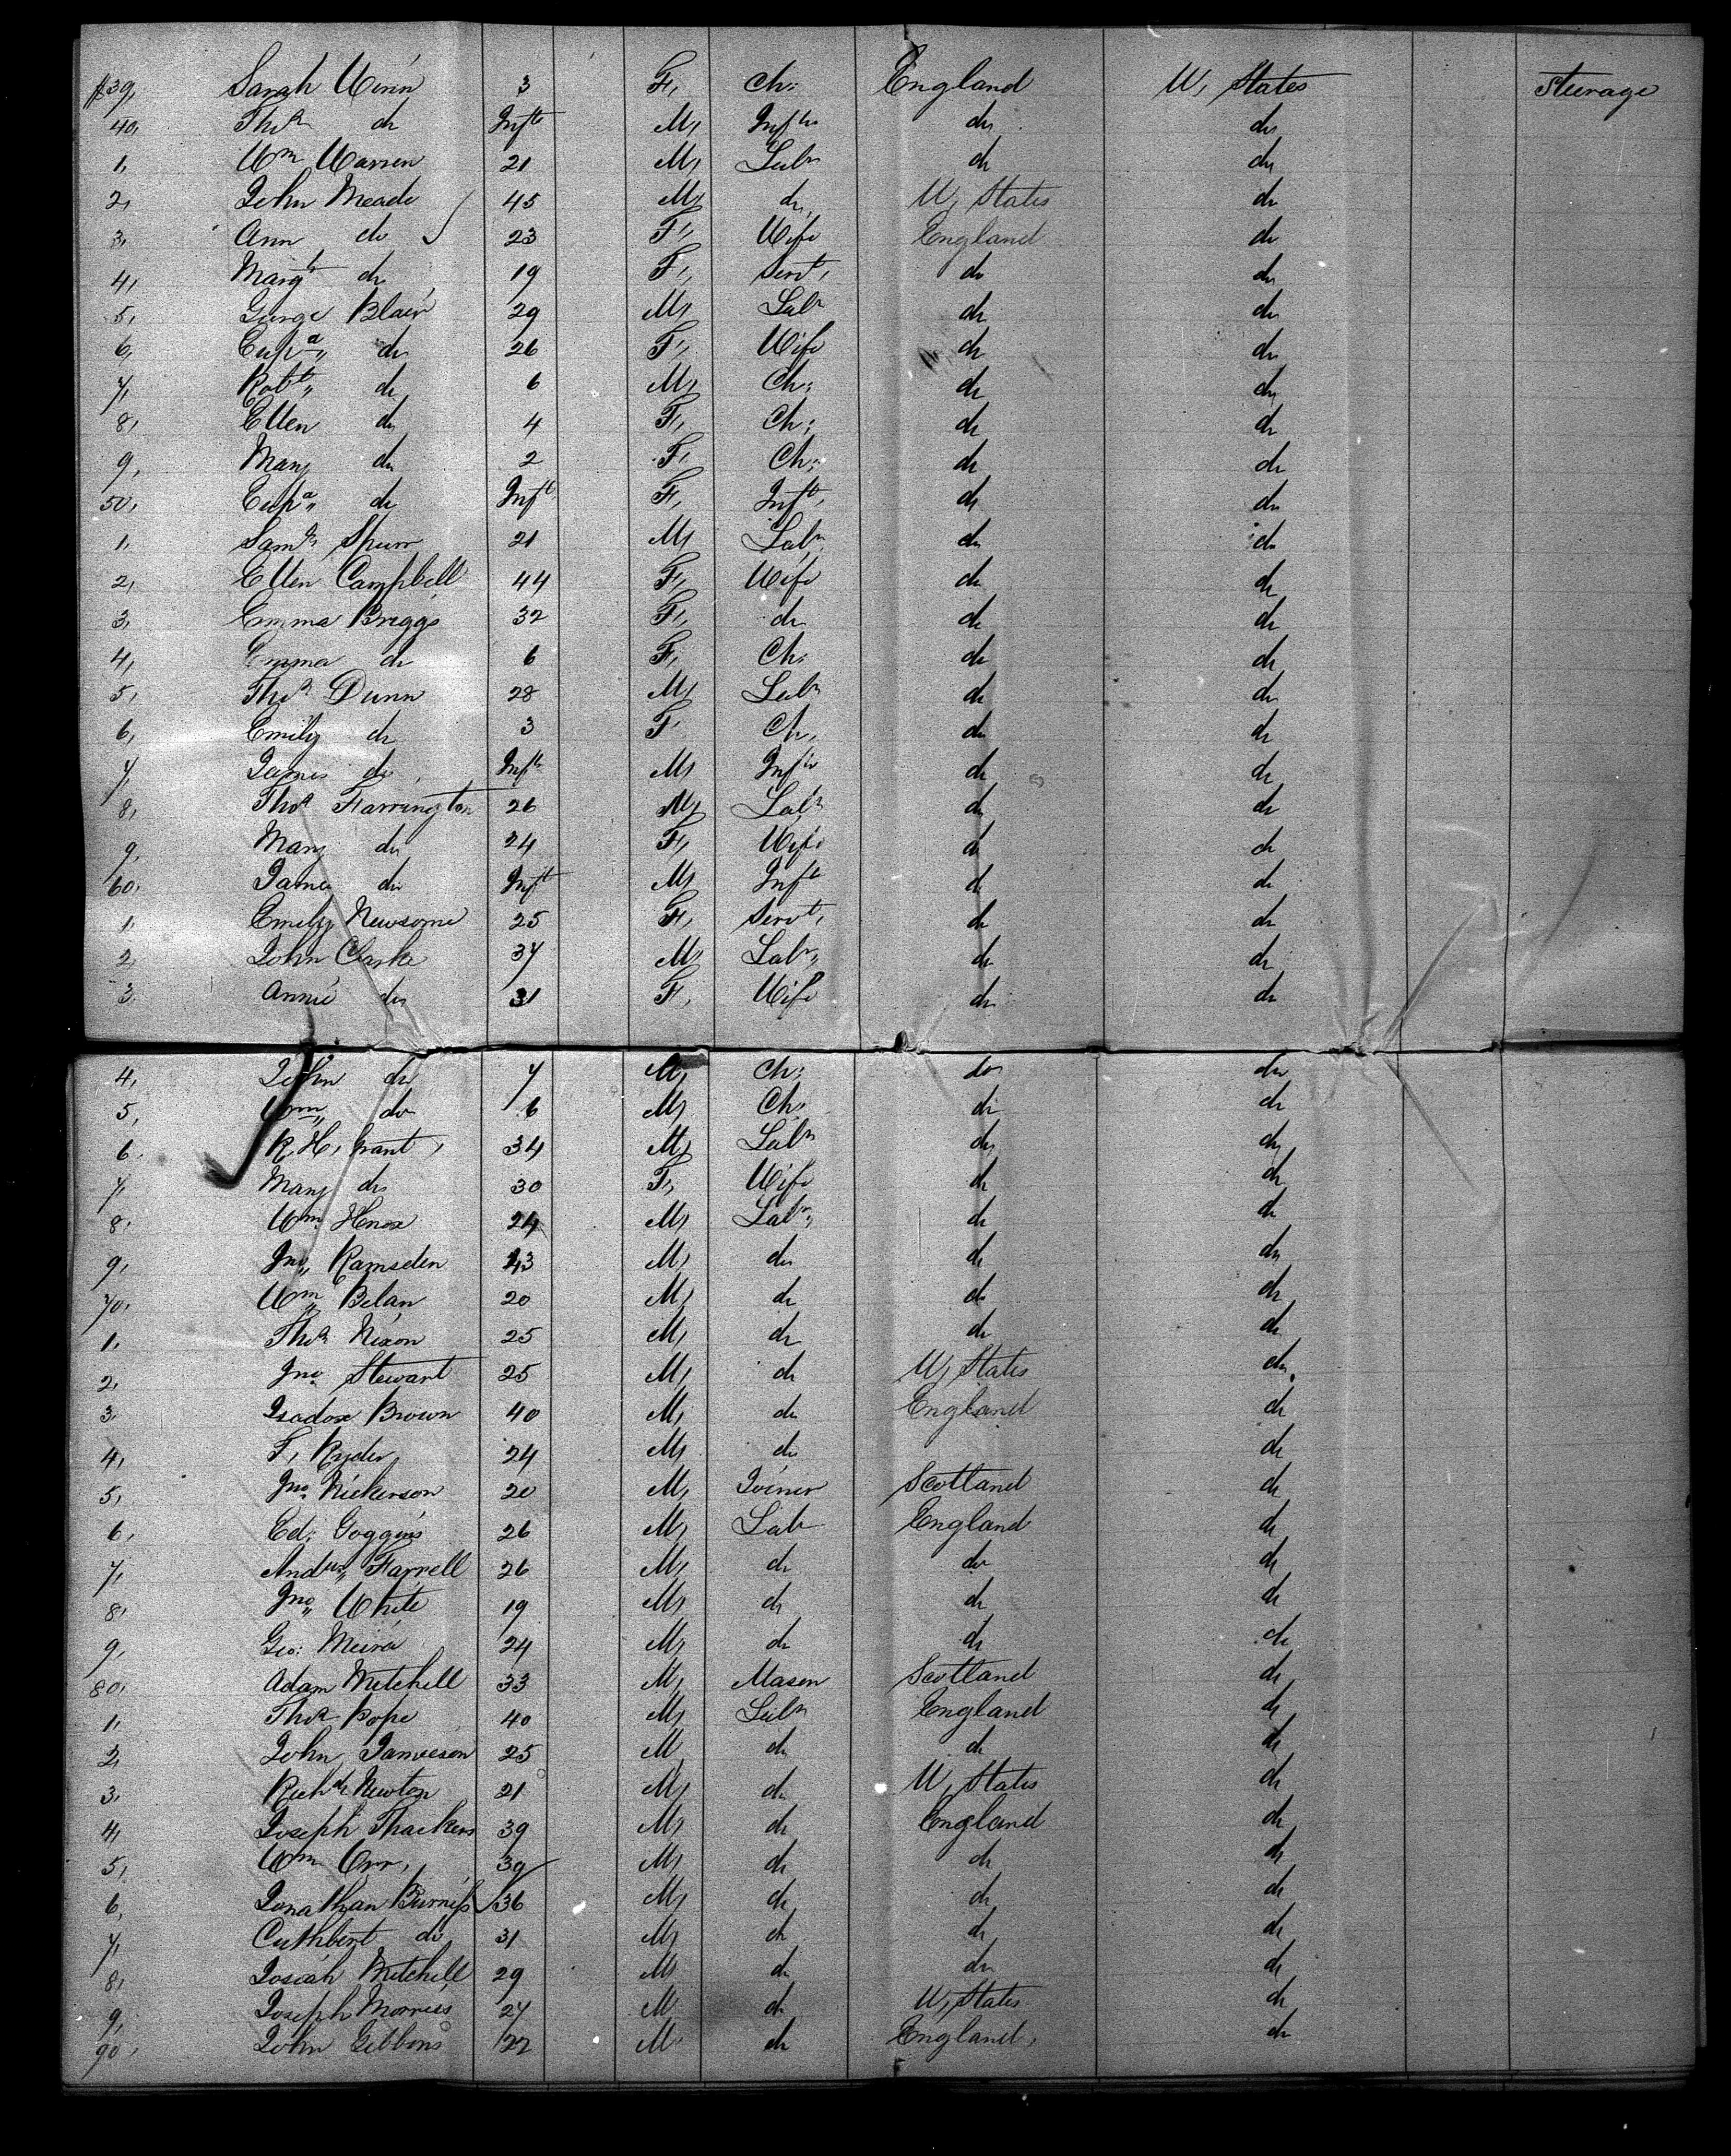 #39, Sarah Winn 3 F, Ch: England U, States Steerage
40, Thos do Inft M, Inft do do
1, Wm Warren 21 M, Labr do do
2, John Meade 45 M, do U, States do
3, Ann do 23 F, Wife England do
4, Margt do 19 F, Servt, do do
5, George Blair 29 M, Labr do do
6, Eupa,, do 26 F, Wife do do
7, Robt,, do 6 M, Ch: do do
8, Ellen do 4 F, Ch: do do
9, Mary do 2 F, Ch: do do
50, Eupa,, do Inft F, Inft, do do
1, Saml Spurr 21 M, Labr do do
2, Ellen Campbell 44 F, Wife do do
3, Emma Briggs 32 F, do do do
4, Emma do 6 F, Ch: do do
5, Thos Dunn 28 M, Labr do do
6, Emily do 3 F, Ch, do do
7, James do Inft M, Inft do do
8, Thos Farrington 26 M, Labr do do
9, Mary do 24 F, Wife do do
60, James do Inft M, Inft do do
1, Emily Newsome 25 F, Servt, do do
2, John Clarke 37 M, Labr,, do do
3, Annie do 31 F, Wife do do
4, John do 7 M, Ch: do do
5, Wm,, do 6 M, Ch: do do
6, R, H, Grant, 34 M, Labr do do
7, Mary do 30 F, Wife do do
8, Wm Knox 24 M, Labr,, do do
9, Jno,, Ramsden 43 M, do do do
70, Wm,, Belan 20 M, do do do
1, Thos Nixon 25 M, do do do
2, Jno Stewart 25 M, do U, States do
3, Isadore Brown 40 M, do England do
4, F, Ryder 24 M, do do
5, Jno Nickerson 20 M, Joiner Scotland do
6, Ed: Goggins 26 M, Lab England do
7, Andw,, Farrell 26 M, do do do
8, Jno,, White 19 M, do do do
9, Geo: 24 M, do do do
80, Adam Mitchell 33 M, Mason Scotland do
1, Thos Pope 40 M, Labr England do
2, John Jamieson 25 M, do do do
3, Richd Newton 21 M, do U, States do
4, Joseph Thackers 39 M, do England do
5, Wm Orr, 39 M, do do do
6, Jonathan Burniss 36 M, do do do
7, Cuthbert do 31 M, do do do
8, Josiah Mitchell 29 M, do do do
9, Joseph Morriss 27 M, do U, States do
90, John Gibbons 22 M, do England, do